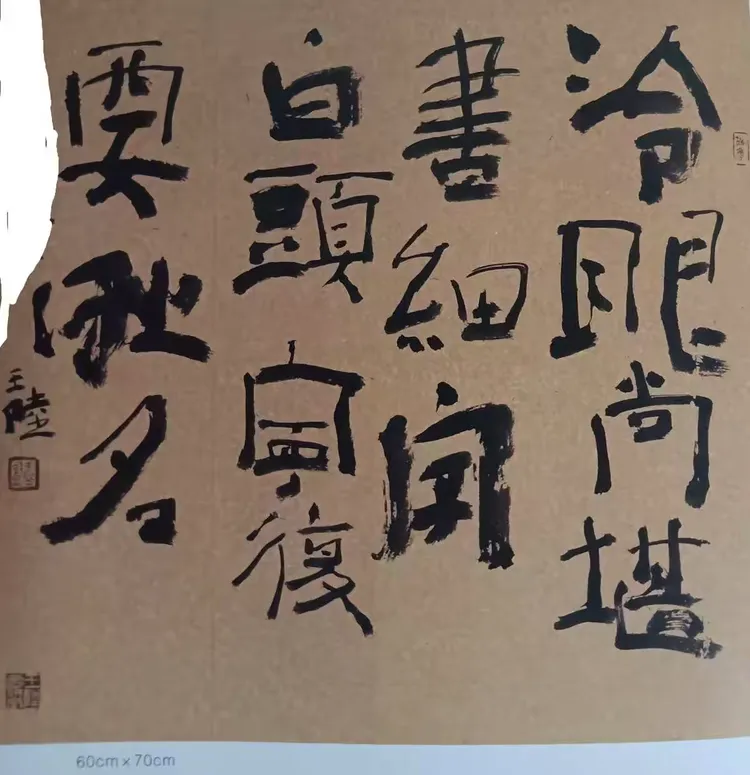 冷眼尚堪
書細字
白頭寧復
要名
王陸
60cm×70cm